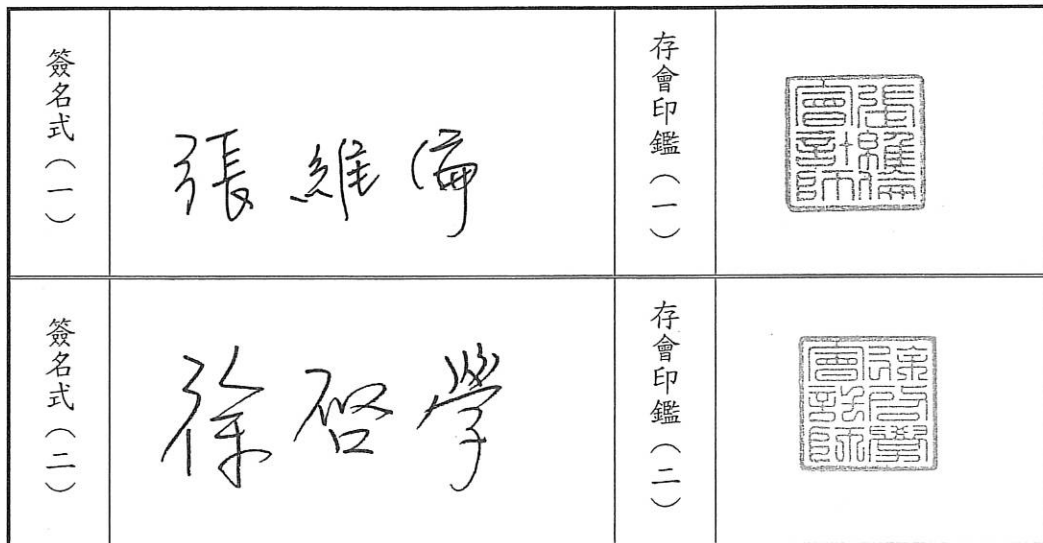 簽名式（一）
張維倫
存會印鑑（一）
張維倫
會計師
簽名式（二）
徐啓學
存會印鑑（二）
徐啓學
會計師